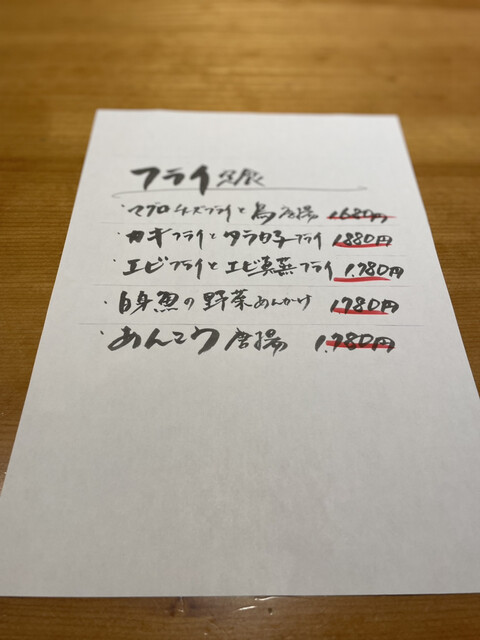 フライ定食
・マグロチーズフライと鳥唐揚 1680円
・カキフライとタラ白子フライ 1880円
・エビフライとエビ真蒸フライ 1.780円
・白身魚の野菜あんかけ 1780円
・あんこう唐揚 1.780円